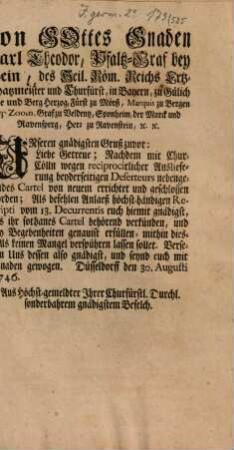 J. germ. 2° 179/525
on GOttes Gnaden
arl Theodor, Pfaltz-Graf bey
ein, des Heil. Röm. Reichs Ertz-
hatzmeister und Churfürst, in Bayern, zu Gülich
e und Berg Hertzog, Fürst zu Mörß, Marquis zu Bergen
p Zoom, Graf zu Veldentz, Sponheim, der Marck und
Ravensperg, Herr zu Ravenstein, ꝛc. ꝛc.
UNseren gnädigsten Gruß zuvor:
Liebe Getreue; Nachdem mit Chur-
Cölln wegen reciprocirlicher Ausliefe-
rung beyderseitigen Deserteurs nebenge-
ndes Cartel von neuem errichtet und geschlossen
rden; Als befehlen Anlaß höchst-händigen Re-
ipti vom 13. Decurrentis euch hiemit gnädigst,
s ihr sothanes Cartel behörend verkünden, und
y Begebenheiten genauist erfüllen, mithin dies-
ls keinen Mangel verspühren lassen sollet. Verse-
n Uns dessen also gnädigst, und seynd euch mit
naden gewogen. Düsseldorff den 30. Augusti
746.
Aus Höchst-gemeldter Ihrer Churfürstl. Durchl.
sonderbahrem gnädigstem Befelch.